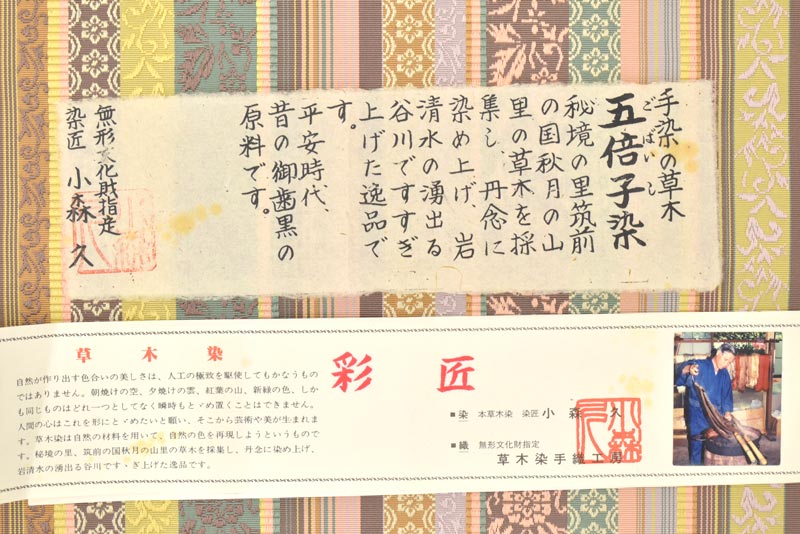 手染の草木
五倍子染
ごばいし
秘境の里筑前
の国秋月の山
里の草木を採
集し、丹念に
染め上げ、岩
清水の湧出る
谷川ですすぎ
上げた逸品で
す。
平安時代、
昔の御歯黒の
原料です。
無形文化財指定
染匠 小森 久
草木染
自然が作り出す色合いの美しさは、人工の極致を駆使してもかなうもの
ではありません。朝焼けの空、夕焼けの雲、紅葉の山、新緑の色、しか
も同じものはどれ一つとしてなく瞬時もとゞめ置くことはできません。
人間の心はこれを形にとゞめたいと願い、そこから芸術や美が生まれま
す。草木染は自然の材料を用いて、自然の色を再現しようというもので
す。秘境の里、筑前の国秋月の山里の草木を採集し、丹念に染め上げ、
岩清水の湧出る谷川です・ぎ上げた逸品です。
彩匠
■染 本草木染 染匠 小森 久
■織 無形文化財指定
草木染手織工房
小森久